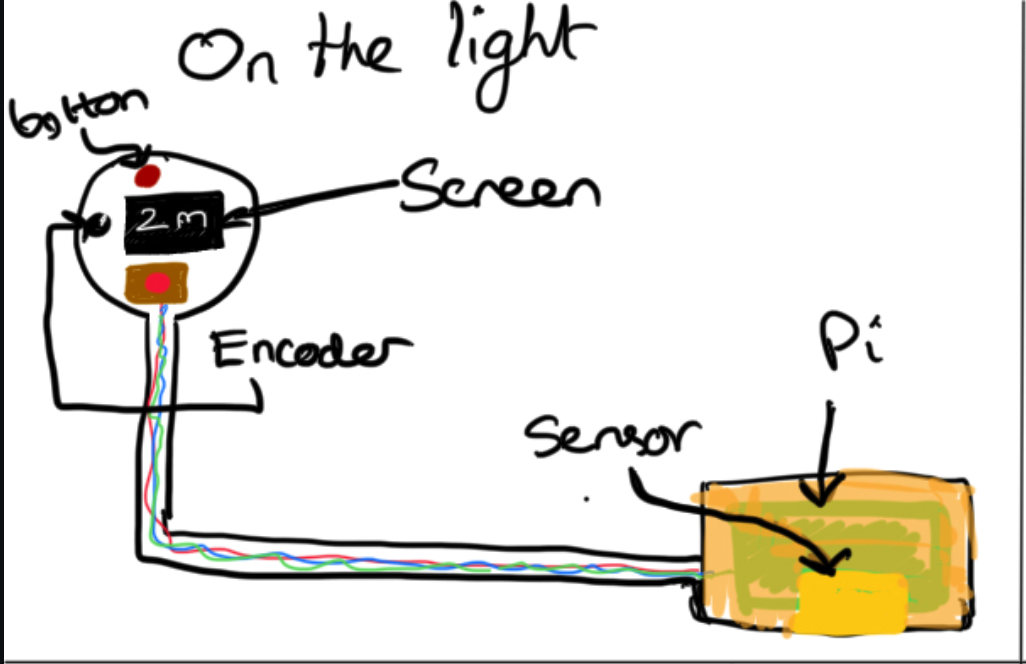 On the light
botton
Screen
2 m
Encoder
Pi
Sensor